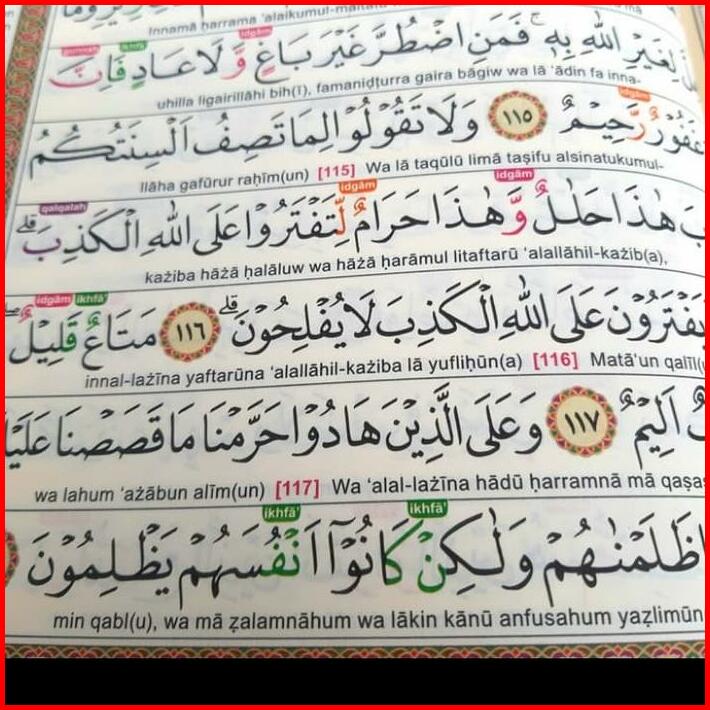 Innamā ḥarrama ‘alaikumul-maitata
idgām
gunnah ikhfā'
لِغَيْرِ اللّٰهِ بِهٖۚ فَمَنِ اضْطُرَّ غَيْرَ بَاغٍ وَّلَا عَادٍ فَاِنَّ
uhilla ligairillāhi bih(ī), famaniḍṭurra gaira bāgiw wa lā ‘ādin fa inna-
idgām
غَفُوْرٌ رَّحِيْمٌ ١١٥ وَلَا تَقُوْلُوْا لِمَا تَصِفُ اَلْسِنَتُكُمُ
llāha gafūrur raḥīm(un) [115] Wa lā taqūlū limā taṣifu alsinatukumul-
qalqalah idgām idgām
هٰذَا حَلٰلٌ وَّهٰذَا حَرَامٌ لِّتَفْتَرُوْا عَلَى اللّٰهِ الْكَذِبَۗ
każiba hāżā ḥalāluw wa hāżā ḥarāmul litaftarū ‘alallāhil-każib(a),
idgām ikhfā'
يَفْتَرُوْنَ عَلَى اللّٰهِ الْكَذِبَ لَا يُفْلِحُوْنَۗ ١١٦ مَتَاعٌ قَلِيْلٌ
innal-lażīna yaftarūna ‘alallāhil-każiba lā yufliḥūn(a) [116] Matā‘un qalīl(
اَلِيْمٌ ١١٧ وَعَلَى الَّذِيْنَ هَادُوْا حَرَّمْنَا مَا قَصَصْنَا
wa lahum ‘ażābun alīm(un) [117] Wa ‘alal-lażīna hādū ḥarramnā mā qaṣa
ikhfā' ikhfā'
ظَلَمْنٰهُمْ وَلٰكِنْ كَانُوْٓا اَنْفُسَهُمْ يَظْلِمُوْنَ
min qabl(u), wa mā ẓalamnāhum wa lākin kānū anfusahum yaẓlimūn